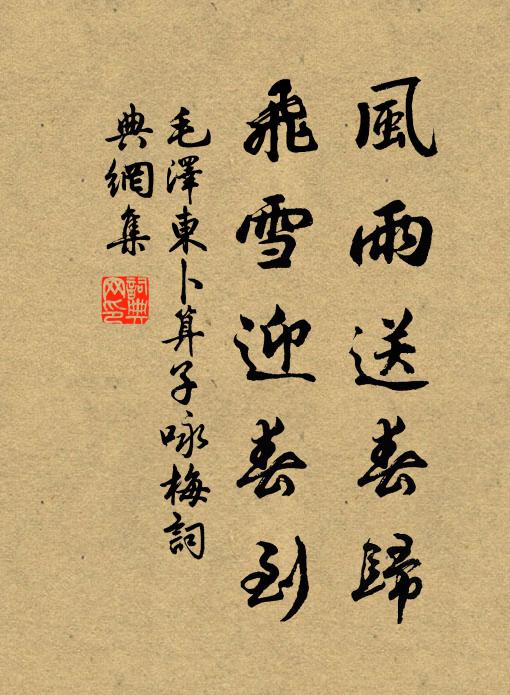 風雨送春歸
飛雪迎春到
毛澤東卜算子咏梅詞
典網集
詞典網印